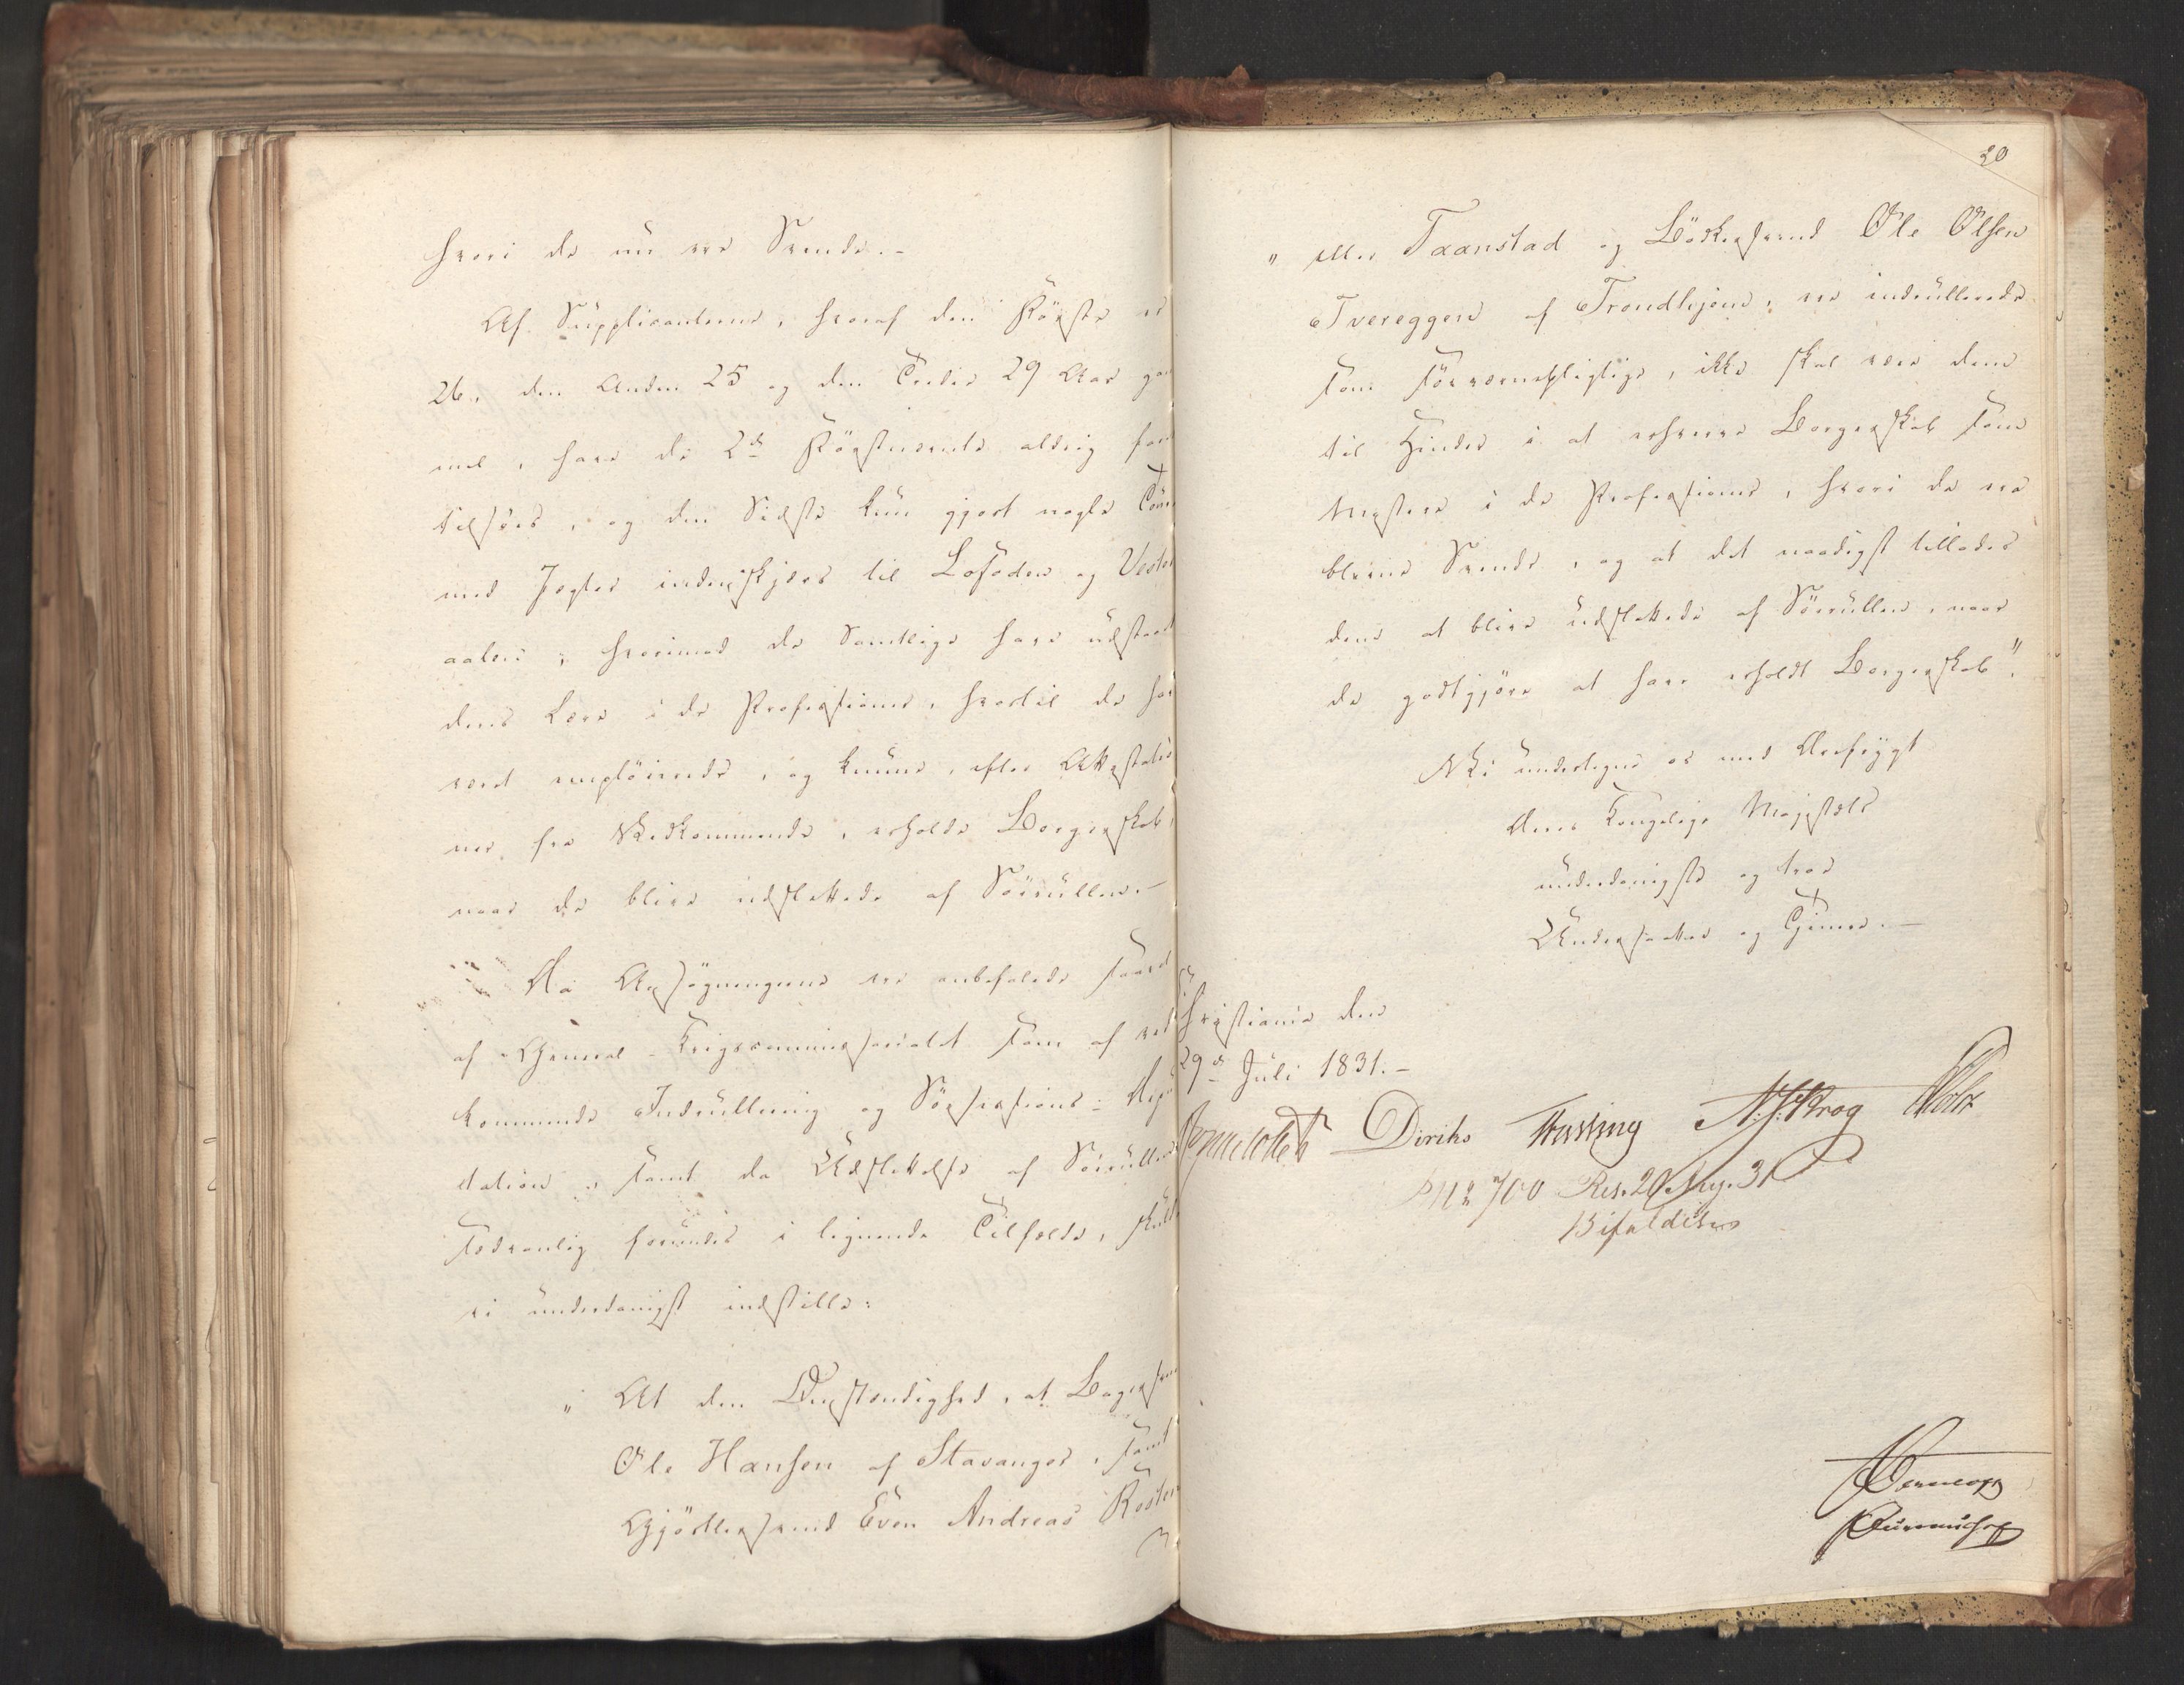 hvori de nu ere Svende.-
Af Supplicanterne, hvoraf den Første er
26, den Anden 25 og den Tredie 29 Aar gam
mel, have de 2de Førstnævnte aldrig faret
tilsøes, og den Sidste kun gjort nogle Toure
med Jægter indenskjærs til Lofoden og Vester
aalen; hvorimod de Samtlige have udstaaet
deres Lære i de Professioner, hvortil de have
været employerede, og kunne, efter Attestatio
ner fra Vedkommende, erholde Borgerskab,
naar de blive udslettede af Sörullen.-
Da Ansøgningerne ere anbefalede saavel
af General-Krigscommissariatet som af ved
kommende Indrullering og Sösessions-Depu
tation, samt da Udslettelse af Sörullen
sædvanlig forundes i lignende Tilfælde, skulle
vi underdanigst indstille:
" At den Omstændighed, at Bagersvend
Ole Hansen af Stavanger, samt
Gjørtlersvend Even Andreas Rosten
20
" eller Taanstad og Bödkersvend Ole Olsen
Tvereggen af Trondhjem, ere indrullerede
som søeværnepligtige, ikke skal være dem
til Hinder i at erhverve Borgerskab som
Mestere i de Professioner, hvori de ere
blevne Svende, og at det naadigst tillades
dem at blive udslettede af Sörullen, naar
de godtgjøre at have erholdt Borgerskab".
Vi undertegne os med Ærefrygt
Deres Kongelige Majestæts
underdanigste og troe
Undersaatter og Tjenere.-
Christiania den
29de Juli 1831.-
Diriks N. J. Krog
PNo 700 Res. 20 Aug. 31
Bifaldes